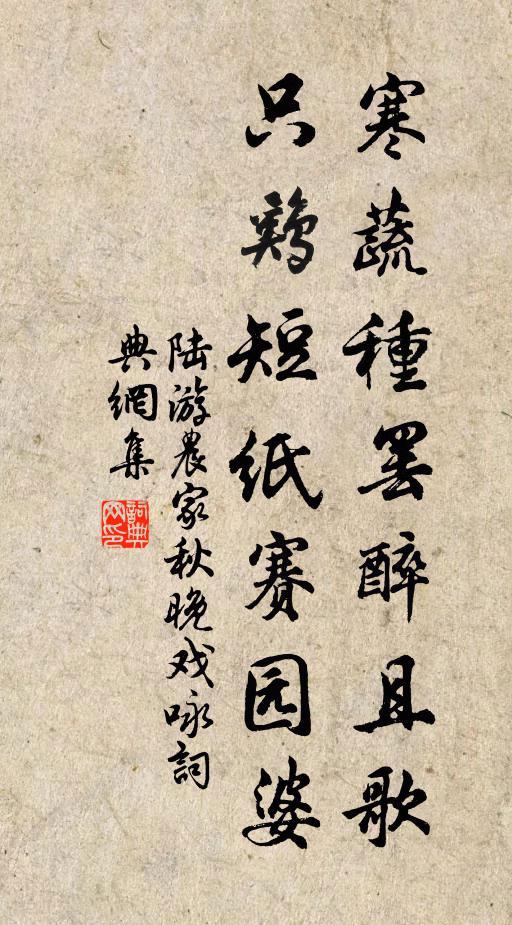 寒蔬種罢醉且歌
只鶏短纸賽园婆
陆游農家秋晚戏咏詞
典網集
詞典網印